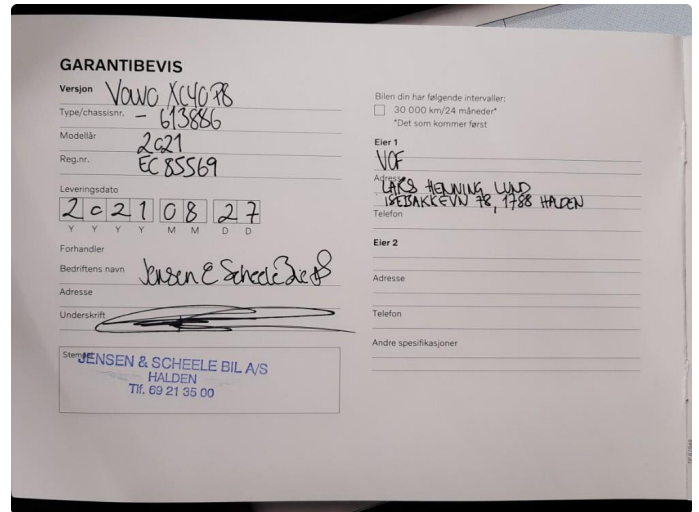 GARANTIBEVIS
Versjon VOLVO XC40 P8
Type/chassisnr. - 613886
Modellår 2021
Reg.nr. EC 85569
Leveringsdato
2021 08 27
Y Y Y Y M M D D
Forhandler
Bedriftens navn Jensen & Scheele Bil AS
Adresse
Underskrift
Stempel
JENSEN & SCHEELE BIL A/S
HALDEN
Tlf. 69 21 35 00
Bilen din har følgende intervaller:
30 000 km/24 måneder*
*Det som kommer først
Eier 1
VCF
Adresse LARS HENNING LUND
ISEBAKKEVN 78, 1788 HALDEN
Telefon
Eier 2
Adresse
Telefon
Andre spesifikasjoner